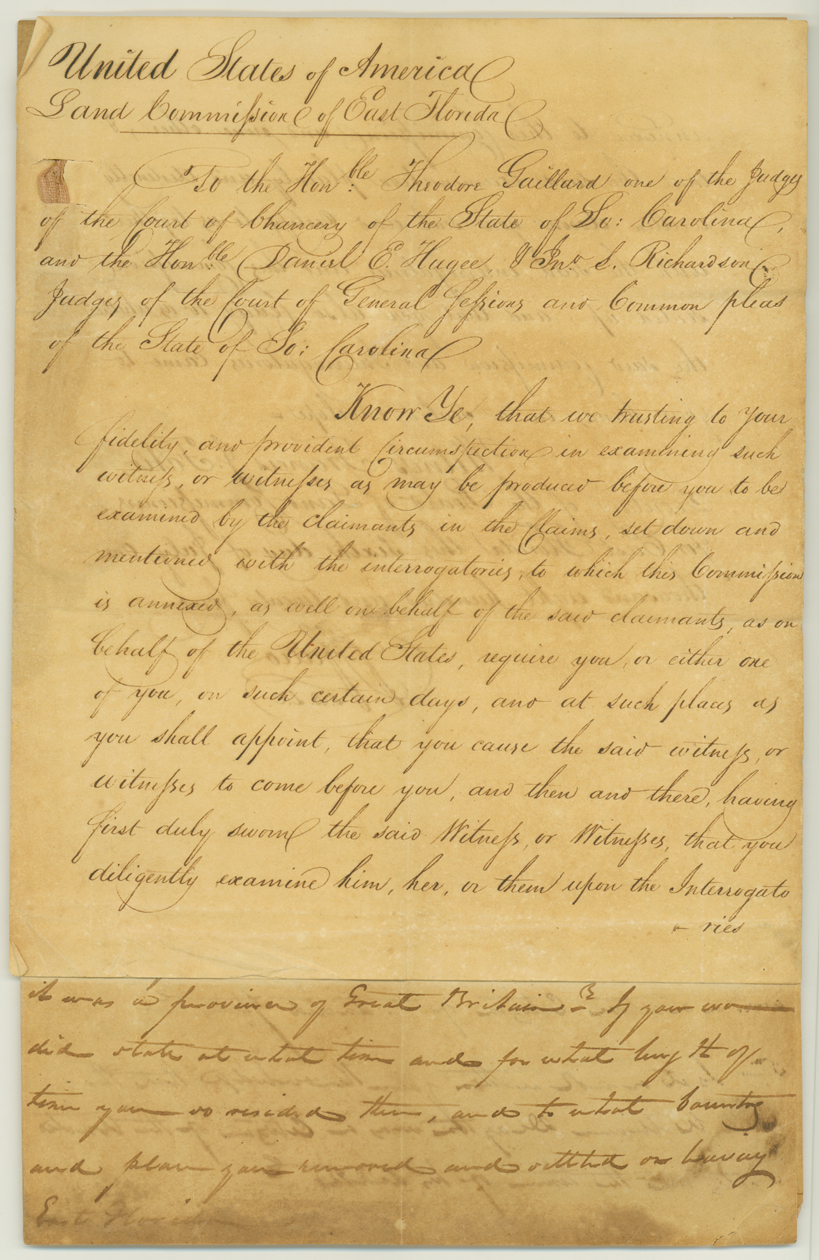 United States of America
Land Commission of East Florida
To the Honble. Theodore Gaillard one of the Judges
of the Court of Chancery of the State of So: Carolina,
and the Honble Daniel E. Huger & Jno. S. Richardson
Judges of the Court of General Sessions and Common pleas
of the State of So: Carolina
Know Ye, that we trusting to your
fidelity, and provident Circumspection in examining such
witness, or witnesses as may be produced before you to be
examined by the claimants in the Claims, set down and
mentioned with the interrogatories, to which this Commission
is annexed, as well on behalf of the said claimants, as on
behalf of the United States, require you, or either one
of you, on such certain days, and at such places as
you shall appoint, that you cause the said witness, or
witnesses to come before you, and then and there, having
first duly sworn the said Witness, or Witnesses, that you
diligently examine him, her, or them upon the Interrogato
ries
it was a province of Great Britain? If you
did state at what time and for what length of
time you so resided there, and to what Country
and place you removed and settled on leaving
East Florida